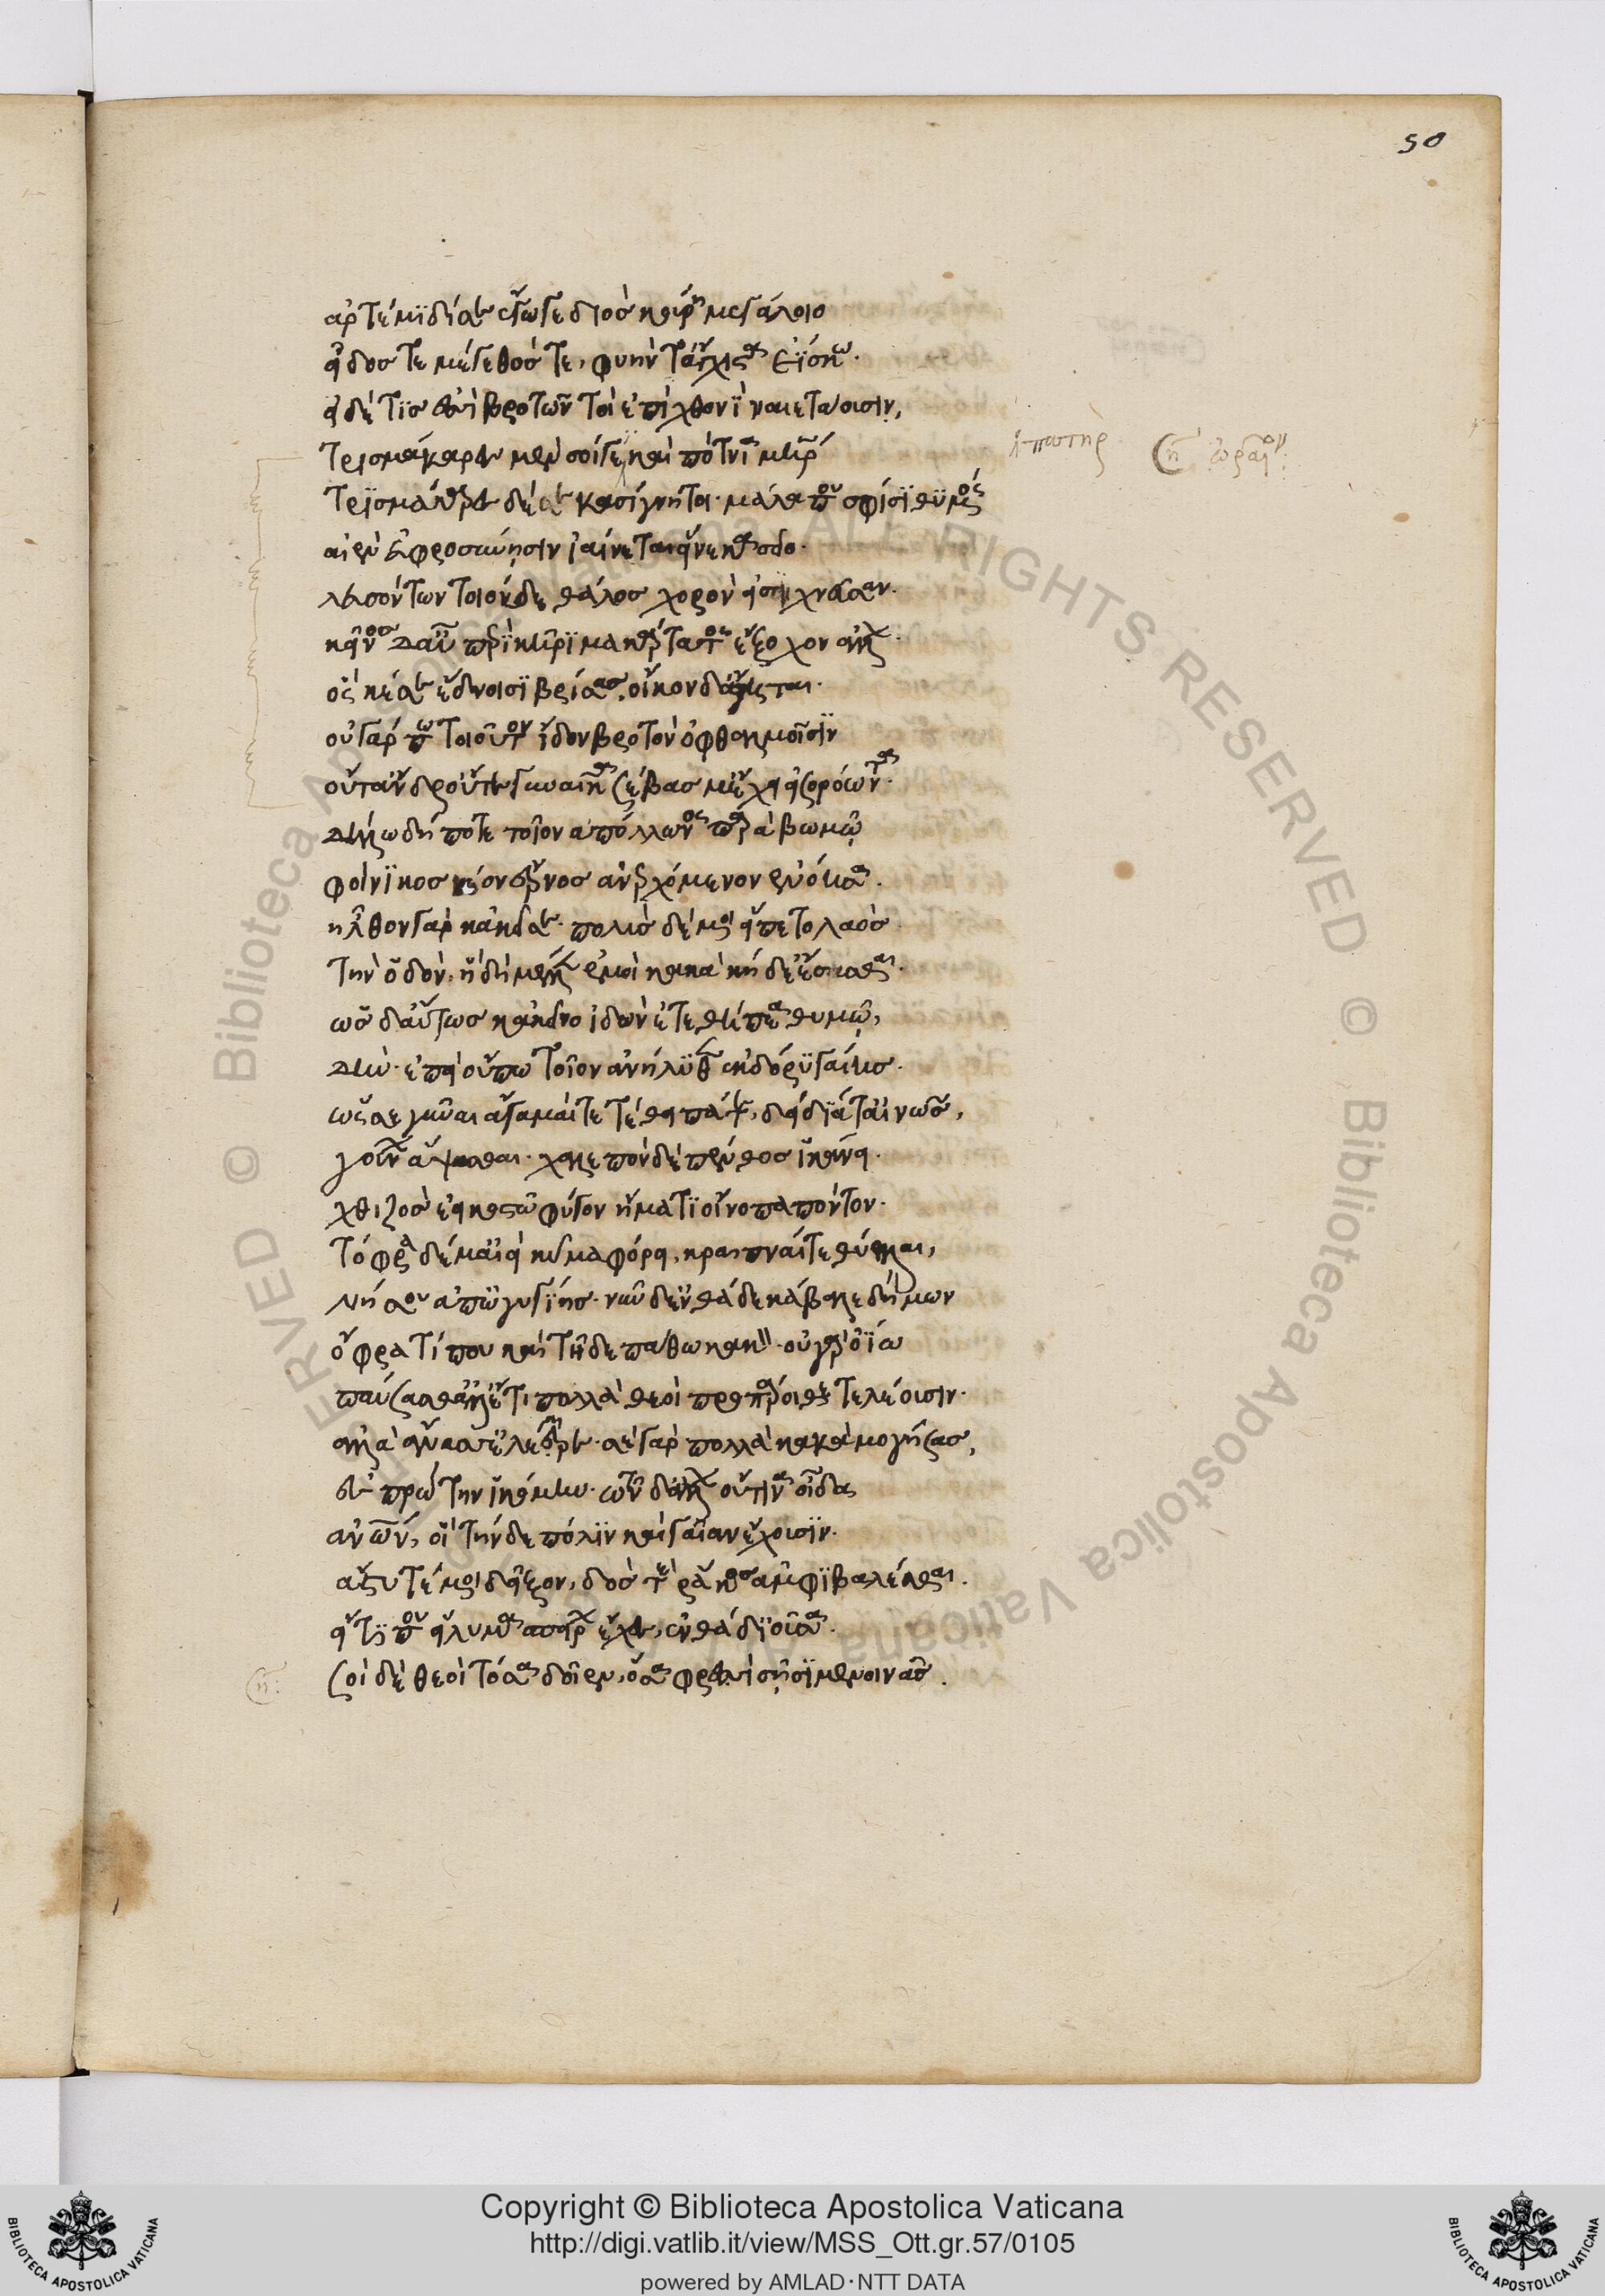 50
ἀρτέμιδί σε ἔγωγε διὸς κούρη μεγάλοιο
εἶδος τε μέγεθός τε, φυήν τ' ἄγχιστα ἐΐσκω.
εἰ δέ τις ἐσσὶ βροτῶν τοὶ ἐπὶ χθονὶ ναιετάουσιν,
τρισμάκαρες μὲν σοίγε καὶ πότνια μήτηρ
τρισμάκαρες δέ κασίγνητοι. μάλα που σφίσι θυμὸς
αἰὲν εὐφροσύνησιν ἰαίνεται εἵνεκα
λευσσόντων τοιόνδε θάλος χορὸν εἰσοιχνεῦσαν.
κεῖνος δ' αὖ περὶ κῆρι μακάρτατος ἔξοχον ἄλλων.
ὅς κέ σε ἕδνοισι βρίσας, οἶκον δ' ἀγάγηται.
οὐ γάρ πω τοιοῦτον ἴδον βροτὸν ὀφθαλμοῖσιν
οὔτ' ἄνδρ' οὔτε γυναῖκα σέβας μ' ἔχει εἰσορόωντα.
δήλω δή ποτε τοῖον ἀπόλλωνος παρὰ βωμῷ
φοίνικος νέον ἔρνος ἀνερχόμενον ἐνόησα.
ἦλθον γὰρ κἀκεῖσε. πολὺς δέ μοι ἕσπετο λαὸς
τὴν ὁδόν, ἣ δὴ μέλλεν ἐμοὶ κακὰ κήδε' ἔσεσθαι.
ὣς δ' αὔτως κἀκεῖνο ἰδὼν ἐτεθήπεα θυμῷ,
δήν. ἐπεὶ οὔπω τοῖον ἀνήλυθεν ἐκ δόρυ γαίης.
ὥς σε γύναι ἄγαμαί τε τέθηπά τε, δείδιά τ' αἰνῶς,
γούνων ἅψασθαι. χαλεπὸν δέ πένθος ἱκάνει.
χθιζὸς ἐεικοστῷ φύγον ἤματι οἴνοπα πόντον.
τόφρα δέ μ' αἰεὶ κῦμα φόρει, κραιπναί τε θύελλαι,
νήσου ἀπ' ὠγυγίης. νῦν δ' ἐνθάδε κάββαλε δαίμων
ὄφρα τί που καὶ τῇδε πάθω κακόν. οὐ γὰρ ὀΐω
παύσασθ' ἀλλ' ἔτι πολλὰ θεοὶ προπάροιθε τελέουσιν.
ἀλλὰ ἄνασσ' ἐλέαιρε. σὲ γὰρ πολλὰ κακὰ μογήσας,
ἐς πρώτην ἱκόμην. τῶν δ' ἄλλων οὔτινα οἶδα
ἀνθρώπων, οἳ τήνδε πόλιν καὶ γαῖαν ἔχουσιν.
ἄστυ τέ μοι δεῖξον, δὸς τὲ ῥάκος ἀμφιβαλέσθαι.
εἴ τι που εἴλυμα σπείρων ἔχες, ἐνθάδ' ἰοῦσα.
σοὶ δὲ θεοὶ τόσα δοῖεν, ὅσα φρεσὶ σῇσι μενοινᾷς.
Copyright © Biblioteca Apostolica Vaticana
http://digi.vatlib.it/view/MSS_Ott.gr.57/0105
powered by AMLAD·NTT DATA
BIBLIOTECA APOSTOLICA VATICANA
BIBLIOTECA APOSTOLICA VATICANA
© Biblioteca Apostolica Vaticana ALL RIGHTS RESERVED